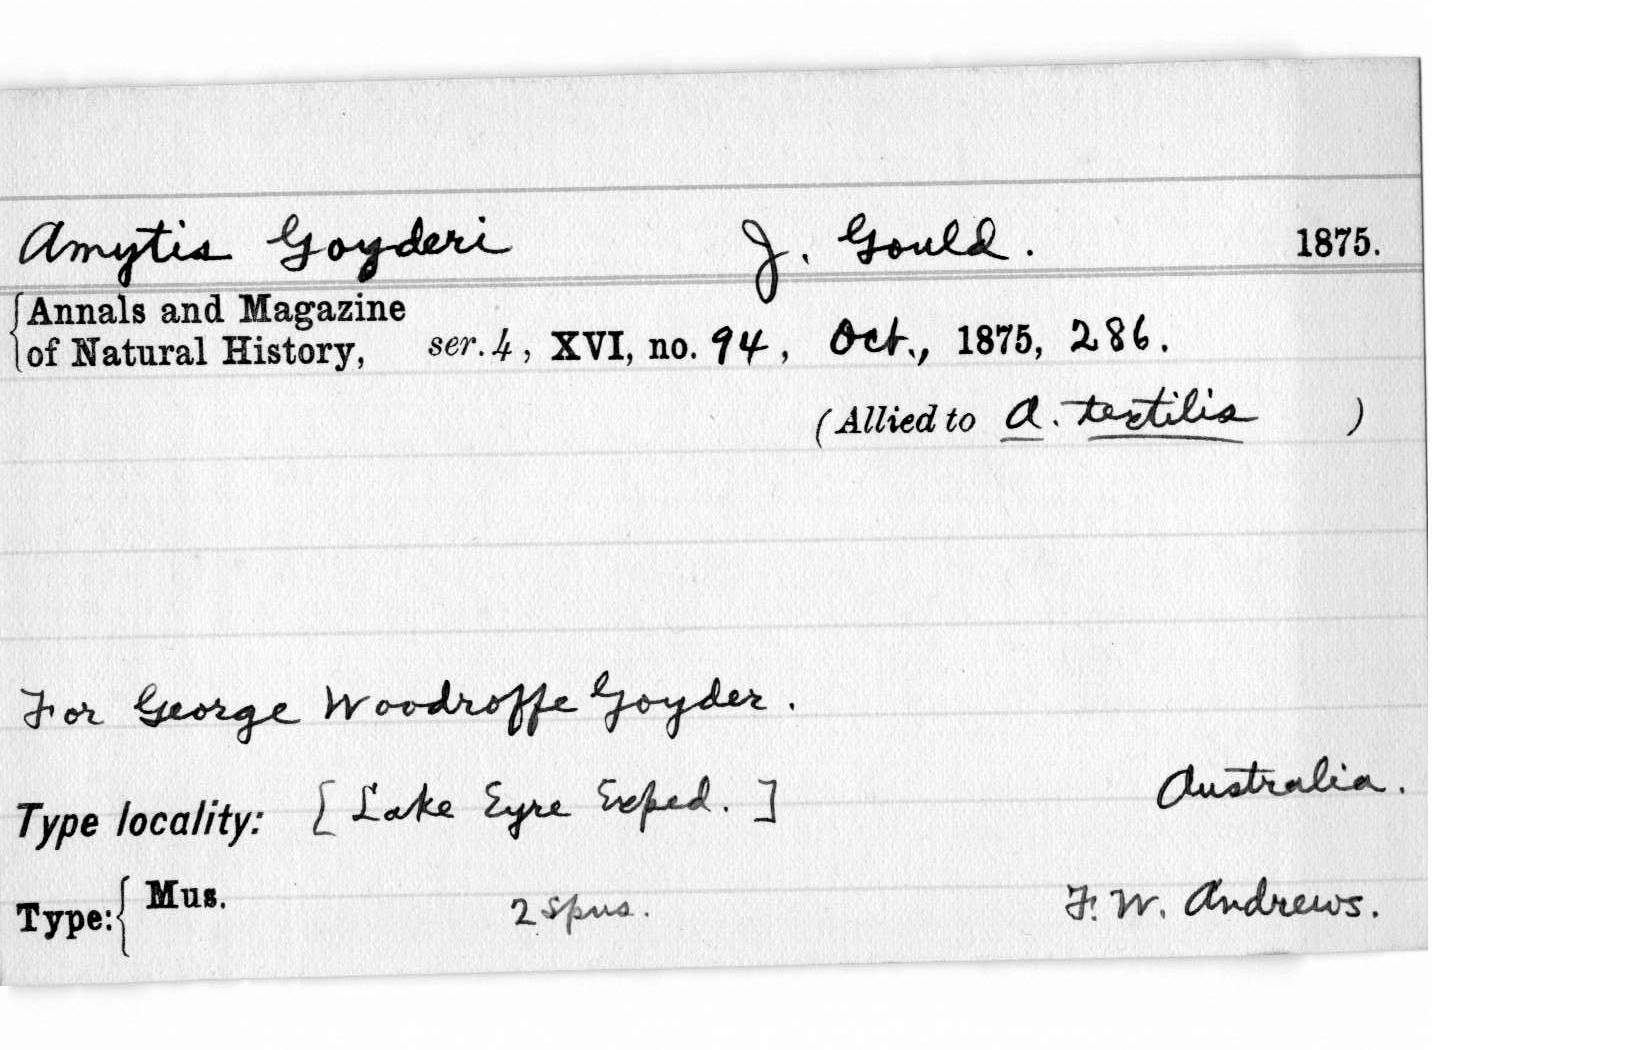 Amytis Goyderi J. Gould. 1875.
{Annals and Magazine
of Natural History, ser. 4, XVI, no. 94, Oct., 1875, 286.
(Allied to A. textilis )
For George Woodroffe Goyder.
Type locality: [Lake Eyre Exped.] Australia.
Type:{ Mus. 2 spns. F. W. Andrews.